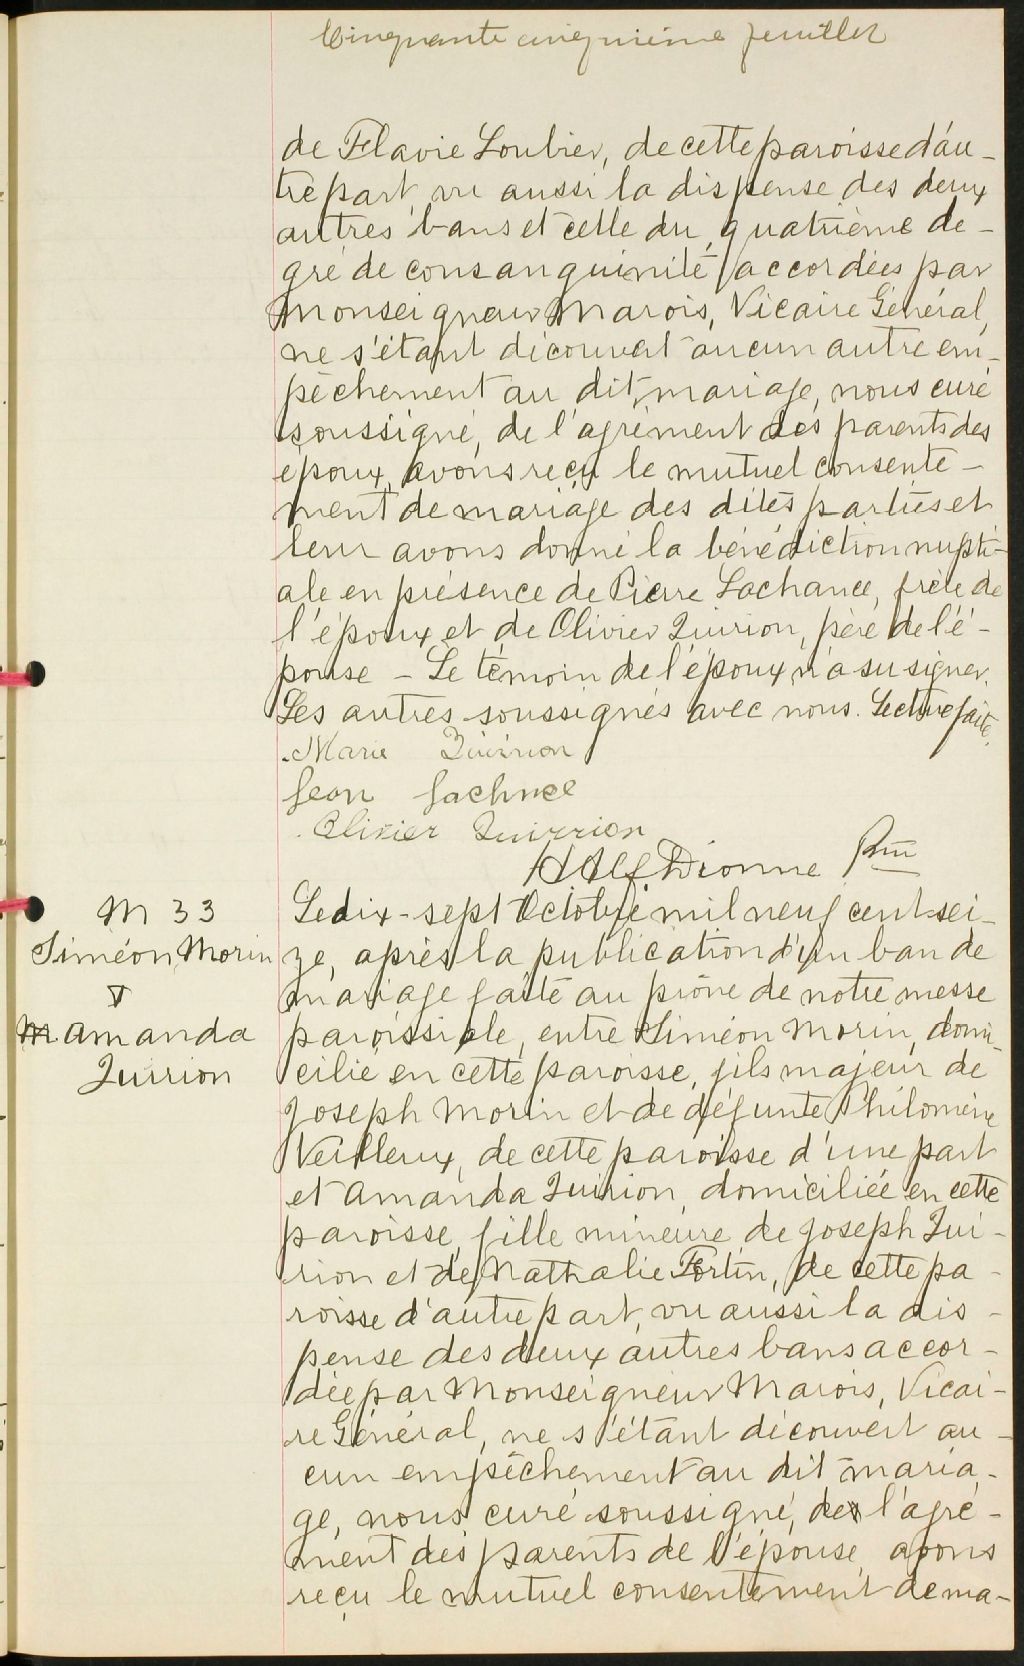 Cinquante cinquième feuillet
de Flavie Loubier, de cette paroisse d'au-
tre part, vu aussi la dispense des deux
autres bans et celle du quatrième de-
gré de consanguinité accordées par
Monseigneur Marois, Vicaire Général,
ne s'étant découvert aucun autre em-
pêchement au dit mariage, nous curé
soussigné, de l'agrément des parents des
époux, avons reçu le mutuel consente-
ment de mariage des dites parties et
leur avons donné la bénédiction nupti-
ale en présence de Pierre Lachance, frère de
l'époux et de Olivier Quirion, père de l'é-
pouse - Le témoin de l'époux n'a su signer.
Les autres soussignés avec nous. Lecture faite.
Marie Quirion
Jean Lachnce
Olivier Quirrion
H Alf Dionne Ptre
M 33
Siméon Morin
&
Amanda
Quirion
Le dix-sept Octobre mil neuf cent sei-
ze, après la publication d'un ban de
mariage faite au prône de notre messe
paroissiale, entre Siméon Morin, domi-
cilié en cette paroisse, fils majeur de
Joseph Morin et de défunte Philomène
Veilleux, de cette paroisse d'une part
et Amanda Quirion, domiciliée en cette
paroisse, fille mineure de Joseph Qui-
rion et de Nathalie Fortin, de cette pa-
roisse d'autre part, vu aussi la dis-
pense des deux autres bans accor-
dée par Monseigneur Marois, Vicai-
re Général, ne s'étant découvert au-
cun empêchement au dit maria-
ge, nous curé soussigné, de l'agré-
ment des parents de l'épouse, avons
reçu le mutuel consentement de ma-